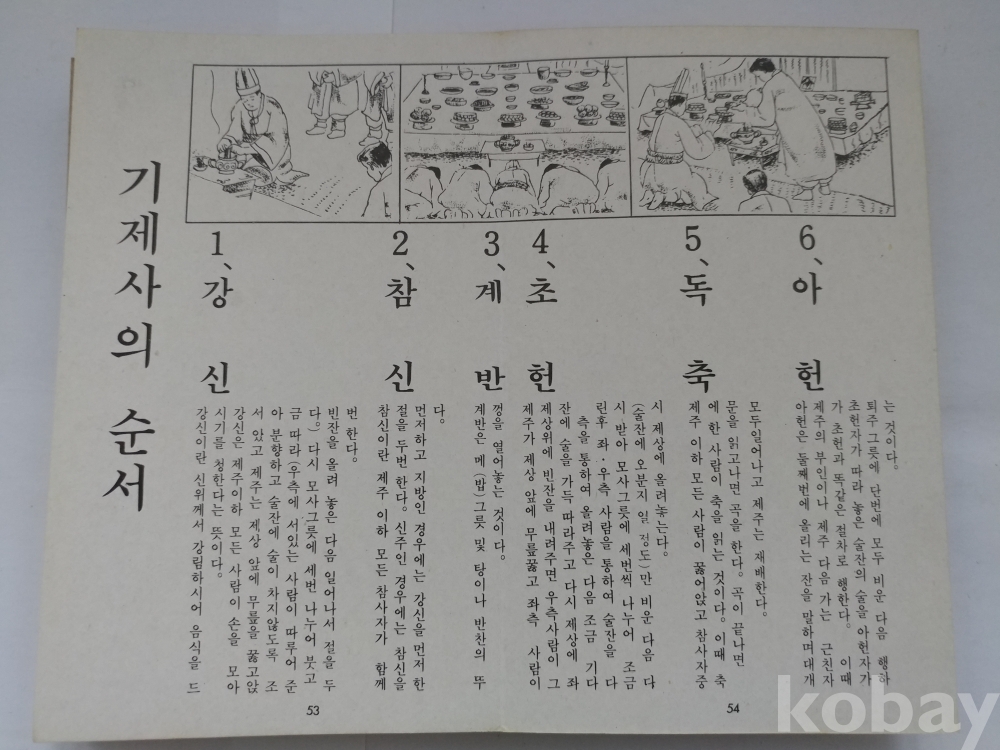 기제사의 순서
1、강신
강신이란 신위께서 강림하시어 음식을 드
시기를 청한다는 뜻이다.
강신은 제주이하 모든 사람이 손을 모아
서 있고 제주는 제상 앞에 무릎을 꿇고앉
아 분향하고 술잔에 술이 차지않도록 조
금 따라(우측에 서있는 사람이 따루어 준
다.) 다시 모사그릇에 세번 나누어 붓고
빈잔을 올려 놓은 다음 일어나서 절을 두
번 한다.
2、참신
참신이란 제주 이하 모든 참사자가 함께
절을 두번 한다. 신주인 경우에는 참신을
먼저하고 지방인 경우에는 강신을 먼저 한
다.
3、계반
계반은 메(밥)그릇 및 탕이나 반찬의 뚜
껑을 열어놓는 것이다.
4、초헌
제주가 제상 앞에 무릎꿇고 좌측 사람이
제상위에 빈잔을 내려주면 우측사람이 그
잔에 술을 가득 따라주고 다시 제상에 좌
측을 통하여 올려놓은 다음 조금 기다
린후 좌·우측 사람을 통하여 술잔을 다
시 받아 모사그릇에 세번씩 나누어 조금
(술잔에 오분지 일 정도)만 비운 다음 다
시 제상에 올려놓는다.
5、독축
제주 이하 모든 사람이 꿇어앉고 참사자중
에 한 사람이 축을 읽는 것이다. 이때 축
문을 읽고나면 곡을 한다. 곡이 끝나면
모두일어나고 제주는 재배한다.
6、아헌
아헌은 둘째번에 올리는 잔을 말하며대개
제주의 부인이나 제주 다음 가는 근친자
가 초헌과 똑같은 절차로 행한다. 이때
초헌자가 따라 놓은 술잔의 술을 아헌자가
퇴주 그릇에 단번에 모두 비운 다음 행하
는 것이다.
53
54
kobay